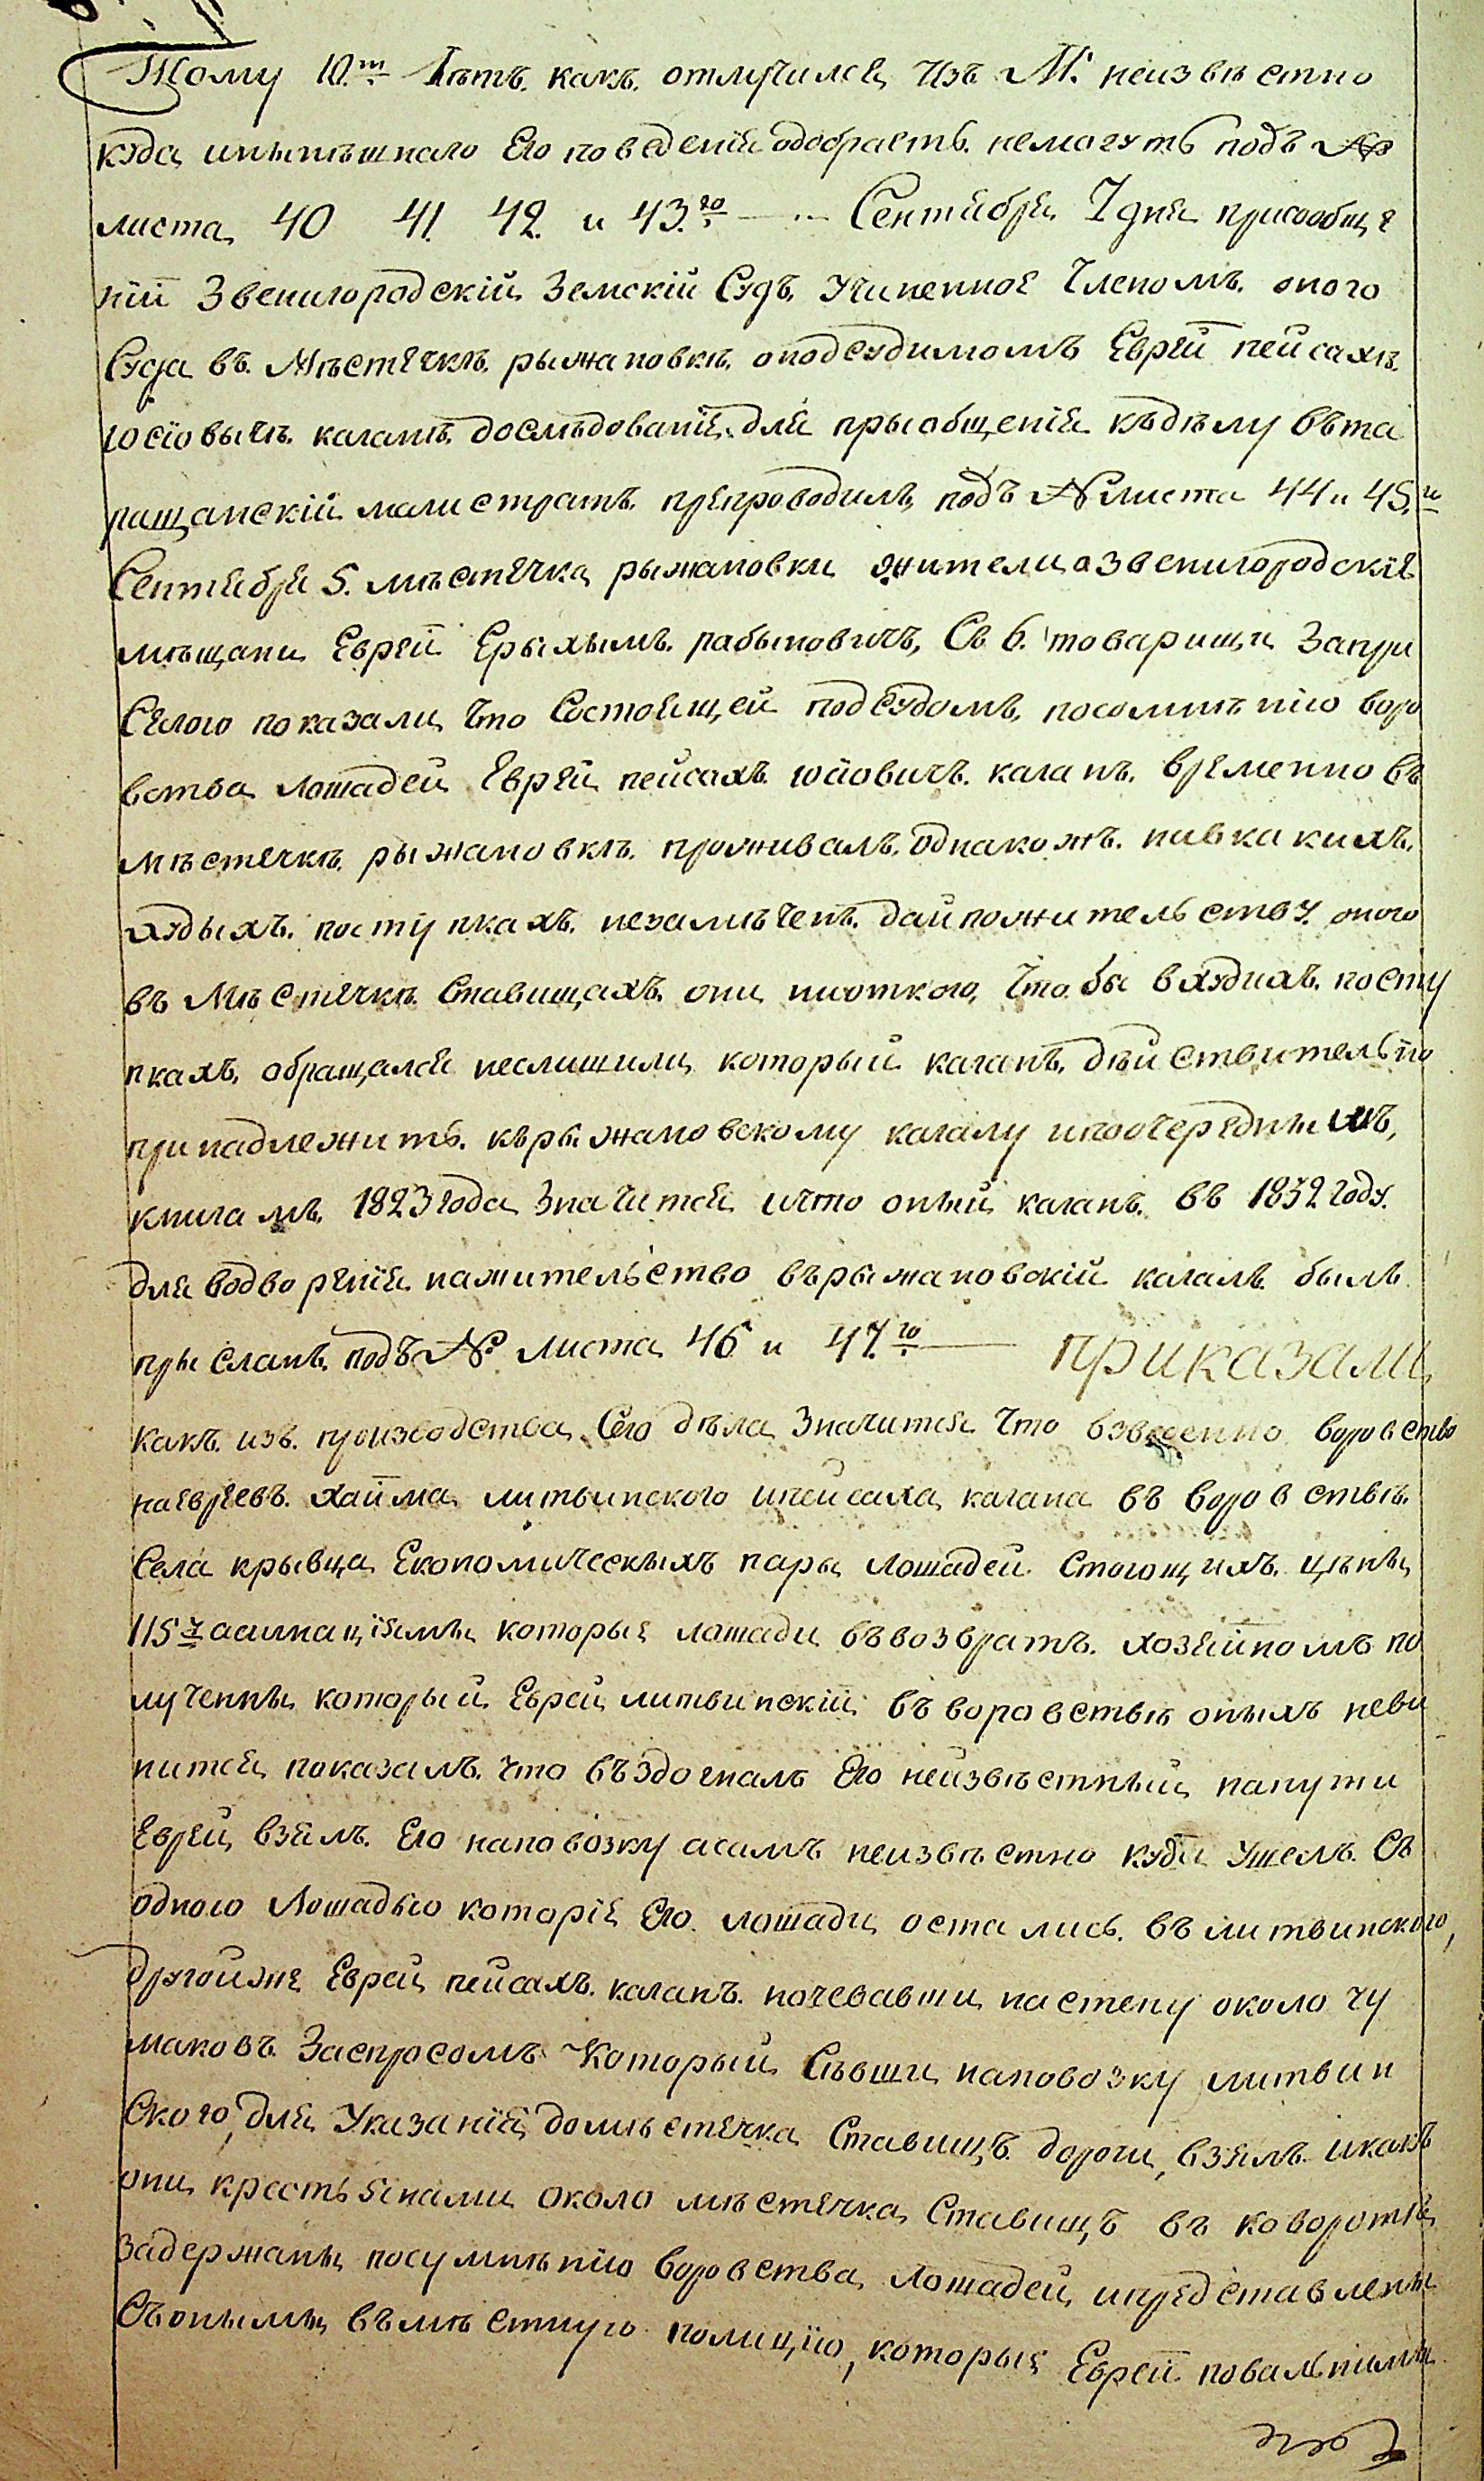 Тому 10.ть Лѣтъ. какъ. отлучился, изъ М: неизвѣстно
куда, инынѣшнаго Его поведенія одобраеть. немогутъ подъ №
листа, 40 41. 42. и 43.го — Сентября, 7 дня присообще
ніи Звенигородскій Земскій Судъ, учиненное Членомъ. оного
Суда въ. Мѣстечкѣ. рыжановкѣ. оподсудимомъ Еврей пейсахѣ.
юсіовычѣ. каганѣ, дослѣдованія, для прыобщенія къдѣлу вѣта
ращанскій магистратъ. препроводилъ, подъ № листа 44 и 45.и
Сентября 5. мѣстечка, рыжановки жители а звенигородскіе
мѣщани Еврей Ерыхымъ. рабыновичъ, Съ 6. товарищи Запри
Сягою показали, что Состоящей подсудомъ, посомнѣнію воро
вства, лошадей Еврей, пейсахъ. юсіовичъ. каганъ. временно въ
мѣстечкѣ. рыжановкѣ. проживалъ. однакожъ. нивкакихъ.
худыхъ. поступкахъ. незамѣченъ. дайпожительству. оного
въ Мѣстечкѣ. Ставищахъ. они, ниоткого, что бы вхудихъ. посту
пкахъ, обращался неслишили, который каганъ, дѣйствительно
принадлежитъ. кърыжановскому кагалу ипоочереднымъ,
книгамъ. 1823 года, значится, ичто оный каганъ. въ 1832 году.
для водворенія нажительство върыжановскій кагалъ. былъ
прысланъ, подъ № листа, 46 и 47.го — приказали,
какъ. изъ. производства, Сего дѣла Значится что взведенно воровство
наевреевъ. хайма, литвинского ипейсаха, кагана въ воровствѣ.
Села крывца, Економическыхъ пары лошадей. стоющихъ. цѣны,
115 р асигнаціямы, которые лошади въвозвратъ. хозяйномъ по
лученны, который. Еврей литвинскій въ воровствѣ оныхъ неви
нится, показалъ. что въздогналъ Его неизвѣстный, напути
Еврей, взялъ. Его наповозку асамъ неизвѣстно куда ушелъ. Съ
одною Лошадью которіе Его. лошади, остались. въ литвинского,
другойже Еврей, пейсахъ. каганъ. ночевавши, настепу около чу
маковъ. Заспросомъ Который, Сѣвши, наповозку литвин
Ского, для Указанія, домѣстечка Ставищъ. дороги, взялъ. икакъ
они, крестьянами около мѣстечка, Ставищъ въ коворотѣ,
задержаны, посумнѣнію воровства, лошадей, ипредставлены
Съонымы, въмѣстную полицію, которые Еврей повальнымы